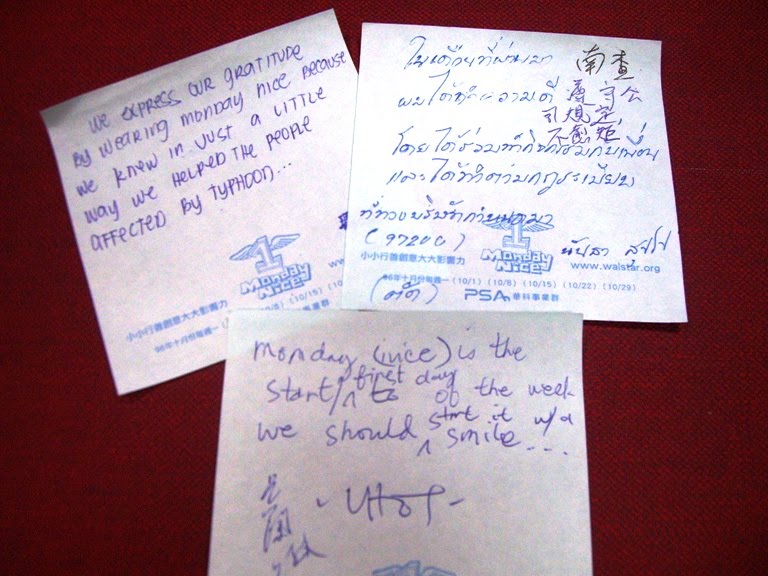 WE EXPRESS OUR GRATITUDE
BY WEARING MONDAY NICE BECAUSE
WE KNEW IN JUST A LITTLE
WAY WE HELPED THE PEOPLE
AFFECTED BY TYPHOON...
1
Monday
Nice!
小小行善創意大大影響力
www
96年十月份每週一 (10/1) (10/8) (10/15) (10
事業群
ในเดือนที่ผ่านมา 南查
ผมได้ทำความดี 遵守公
司規定
不亂
โดยได้ร่วมทำกิจกรรมกับเพื่อน
และได้ทำตามกฎระเบียบ
ที่ทางบริษัทกำหนดมา
(97200)
1
Monday
Nice!
小小行善創意大大影響力
www.walstar.org
96年十月份每週一 (10/1) (10/8) (10/15) (10/22) (10/29)
PSA 華科事業群
Monday (nice) is the
start/first day of the week
we should start it w/a
smile...